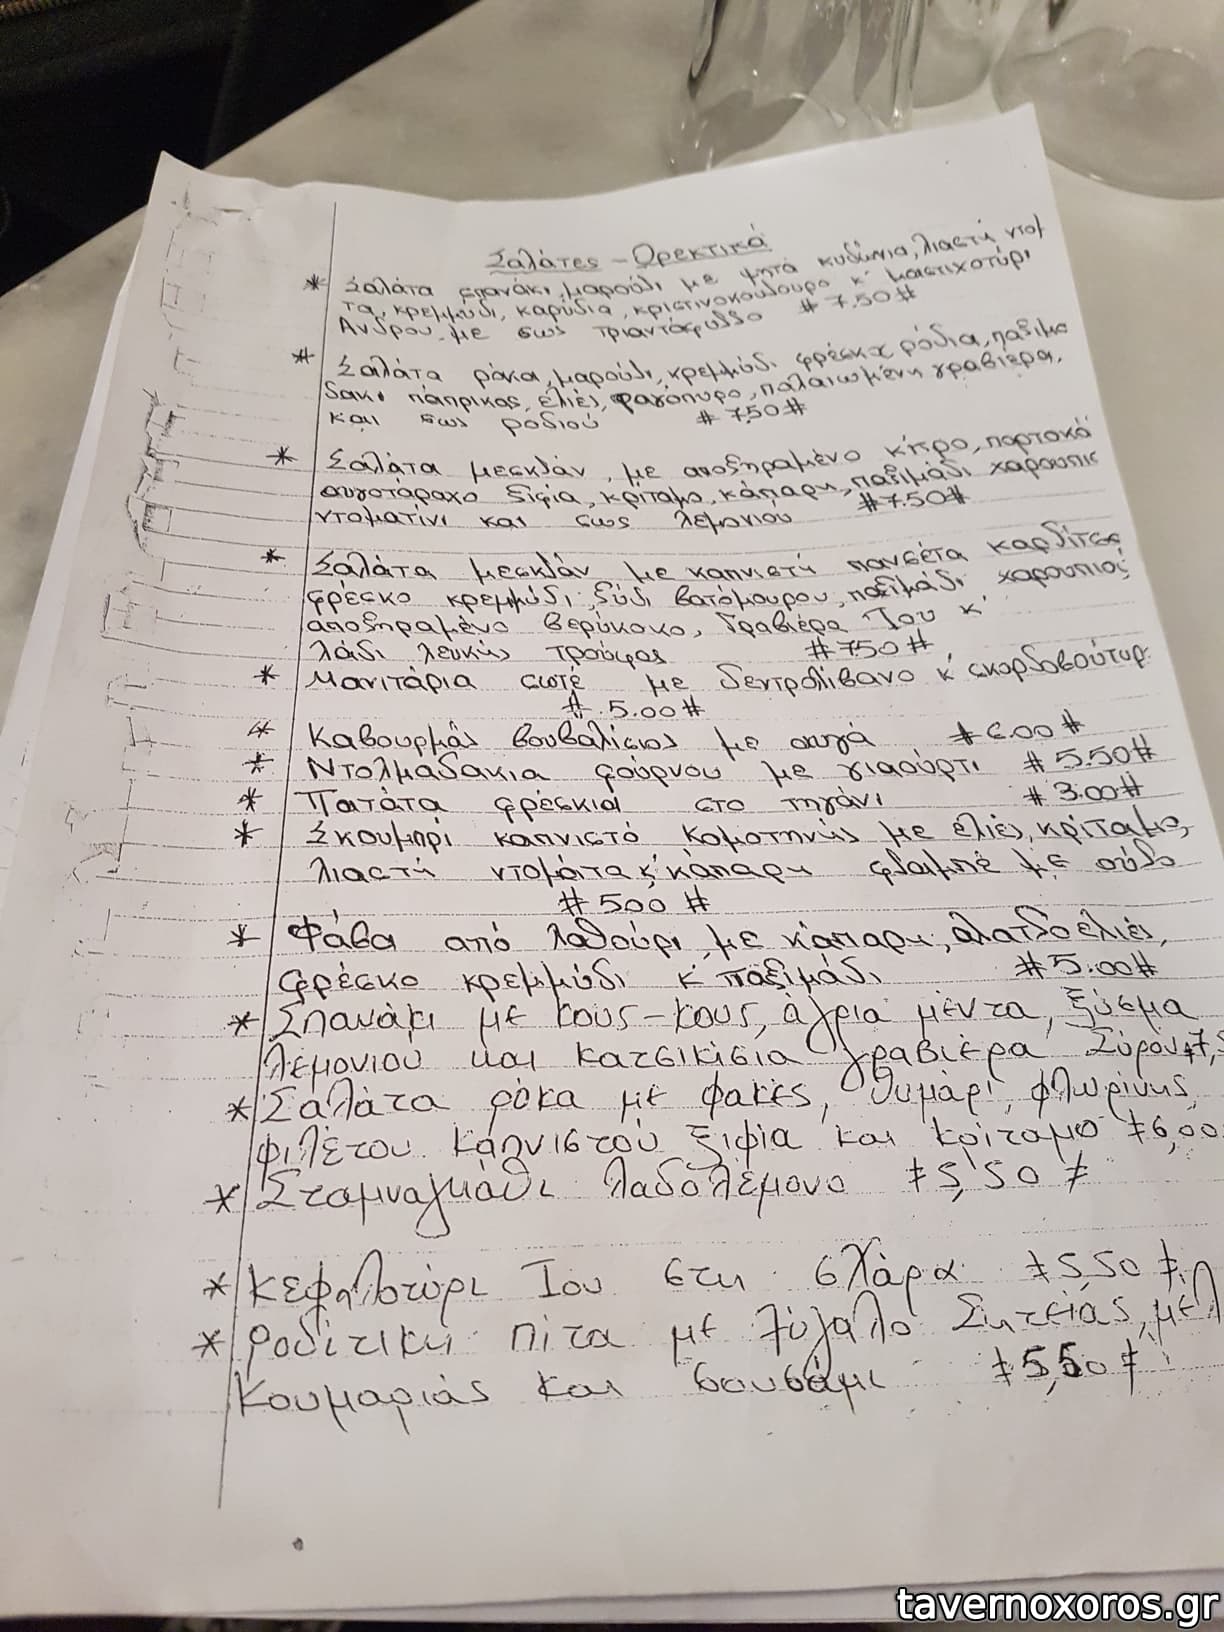 Σαλάτες - Ορεκτικά
* Σαλάτα σπανάκι, μαρούλι με ψητά κυδώνια, λιαστή ντομ
τα, κρεμμύδι, καρύδια, κριτσινοκούλουρο κ' μαστιχοτύρι
Άνδρου με σως τριαντάφυλλο # 7.50 #
* Σαλάτα ρόκα, μαρούλι, κρεμμύδι φρέσκο, ρόδια, παξιμα
δακι πάπρικας, ελιές, φαγόπυρο, παλαιωμένη γραβιέρα,
και σως ροδιού # 7.50 #
* Σαλάτα μεσκλάν, με αποξηραμένο κίτρο, πορτοκά
αυγοτάραχο ξιφία, κρίταμο, κάπαρη, παξιμάδι χαρουπις
ντοματίνι και σως λεμονιού # 7.50 #
* Σαλάτα μεσκλάν με καπνιστή πανσέτα Καρδίτσας
φρέσκο κρεμμύδι, ξύδι βατόμουρου, παξιμάδι χαρουπιός
αποξηραμένο βερύκοκο, Γραβιέρα Ίου κ'
λάδι λευκής τρούφας # 750 #
* Μανιτάρια σωτέ με δεντρολίβανο κ' σκορδοβούτυρ.
# 5.00 #
* Καβουρμάς βουβαλίσιος με αυγά # 6.00 #
* Ντολμαδακια φούρνου με γιαούρτι # 5.50 #
* Πατάτα φρέσκια στο τηγάνι # 3.00 #
* Σκουμπρί καπνιστό Κομοτηνής με ελιές, κρίταμο,
λιαστή ντομάτα κ' κάπαρη φλαμπέ με ούζο
# 500 #
* Φάβα από λαθούρι με κάπαρη, αλατσοελιές,
φρέσκο κρεμμύδι κ' παξιμάδι # 5.00 #
* Σπανάκι με κους-κους, άγρια μέντα, ξύσμα
λεμονιού και κατσικίσια γραβιέρα Σύρου # 7,5
* Σαλάτα ρόκα με φακές, θυμάρι, φλωρίνης,
φιλέτου καπνιστού ξιφία και κρίταμο # 6,00
* Σταμναγκάθι λαδολέμονο # 5,50 #
* Κεφαλοτύρι Ίου στη σχάρα # 5,50 #
* Ροδίτικη πίτα με ξύγαλο Σητείας, μελ
κουμαριάς και σουσάμι # 5,50 #
tavernoxoros.gr